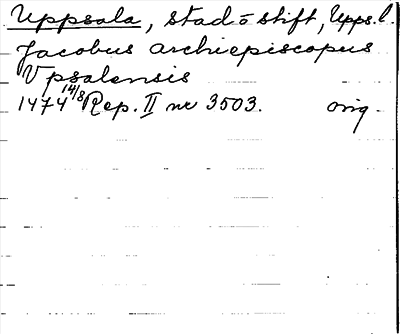 Uppsala, stad o stift, Upps. l.
Jacobus archiepiscopus
Vpsalensis
1474 14/8 Rep. II nr 3503. orig.